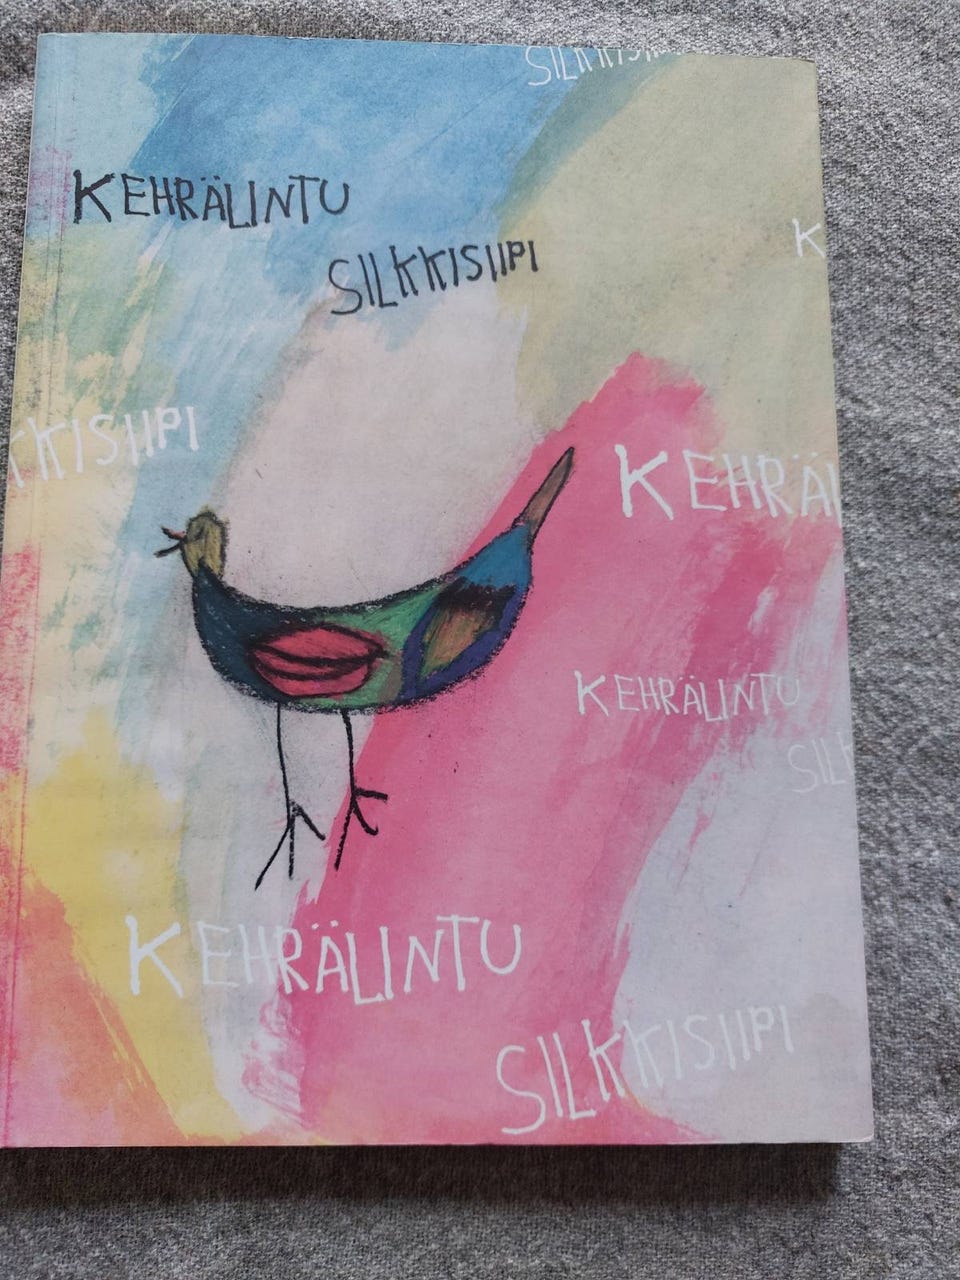 SILKKISII
KEHRÄLINTU
K
SILKKISIIPI
KKISIIPI
KEHRÄL
KEHRÄLINTU
SILK
KEHRÄLINTU
SILKKISIIPI